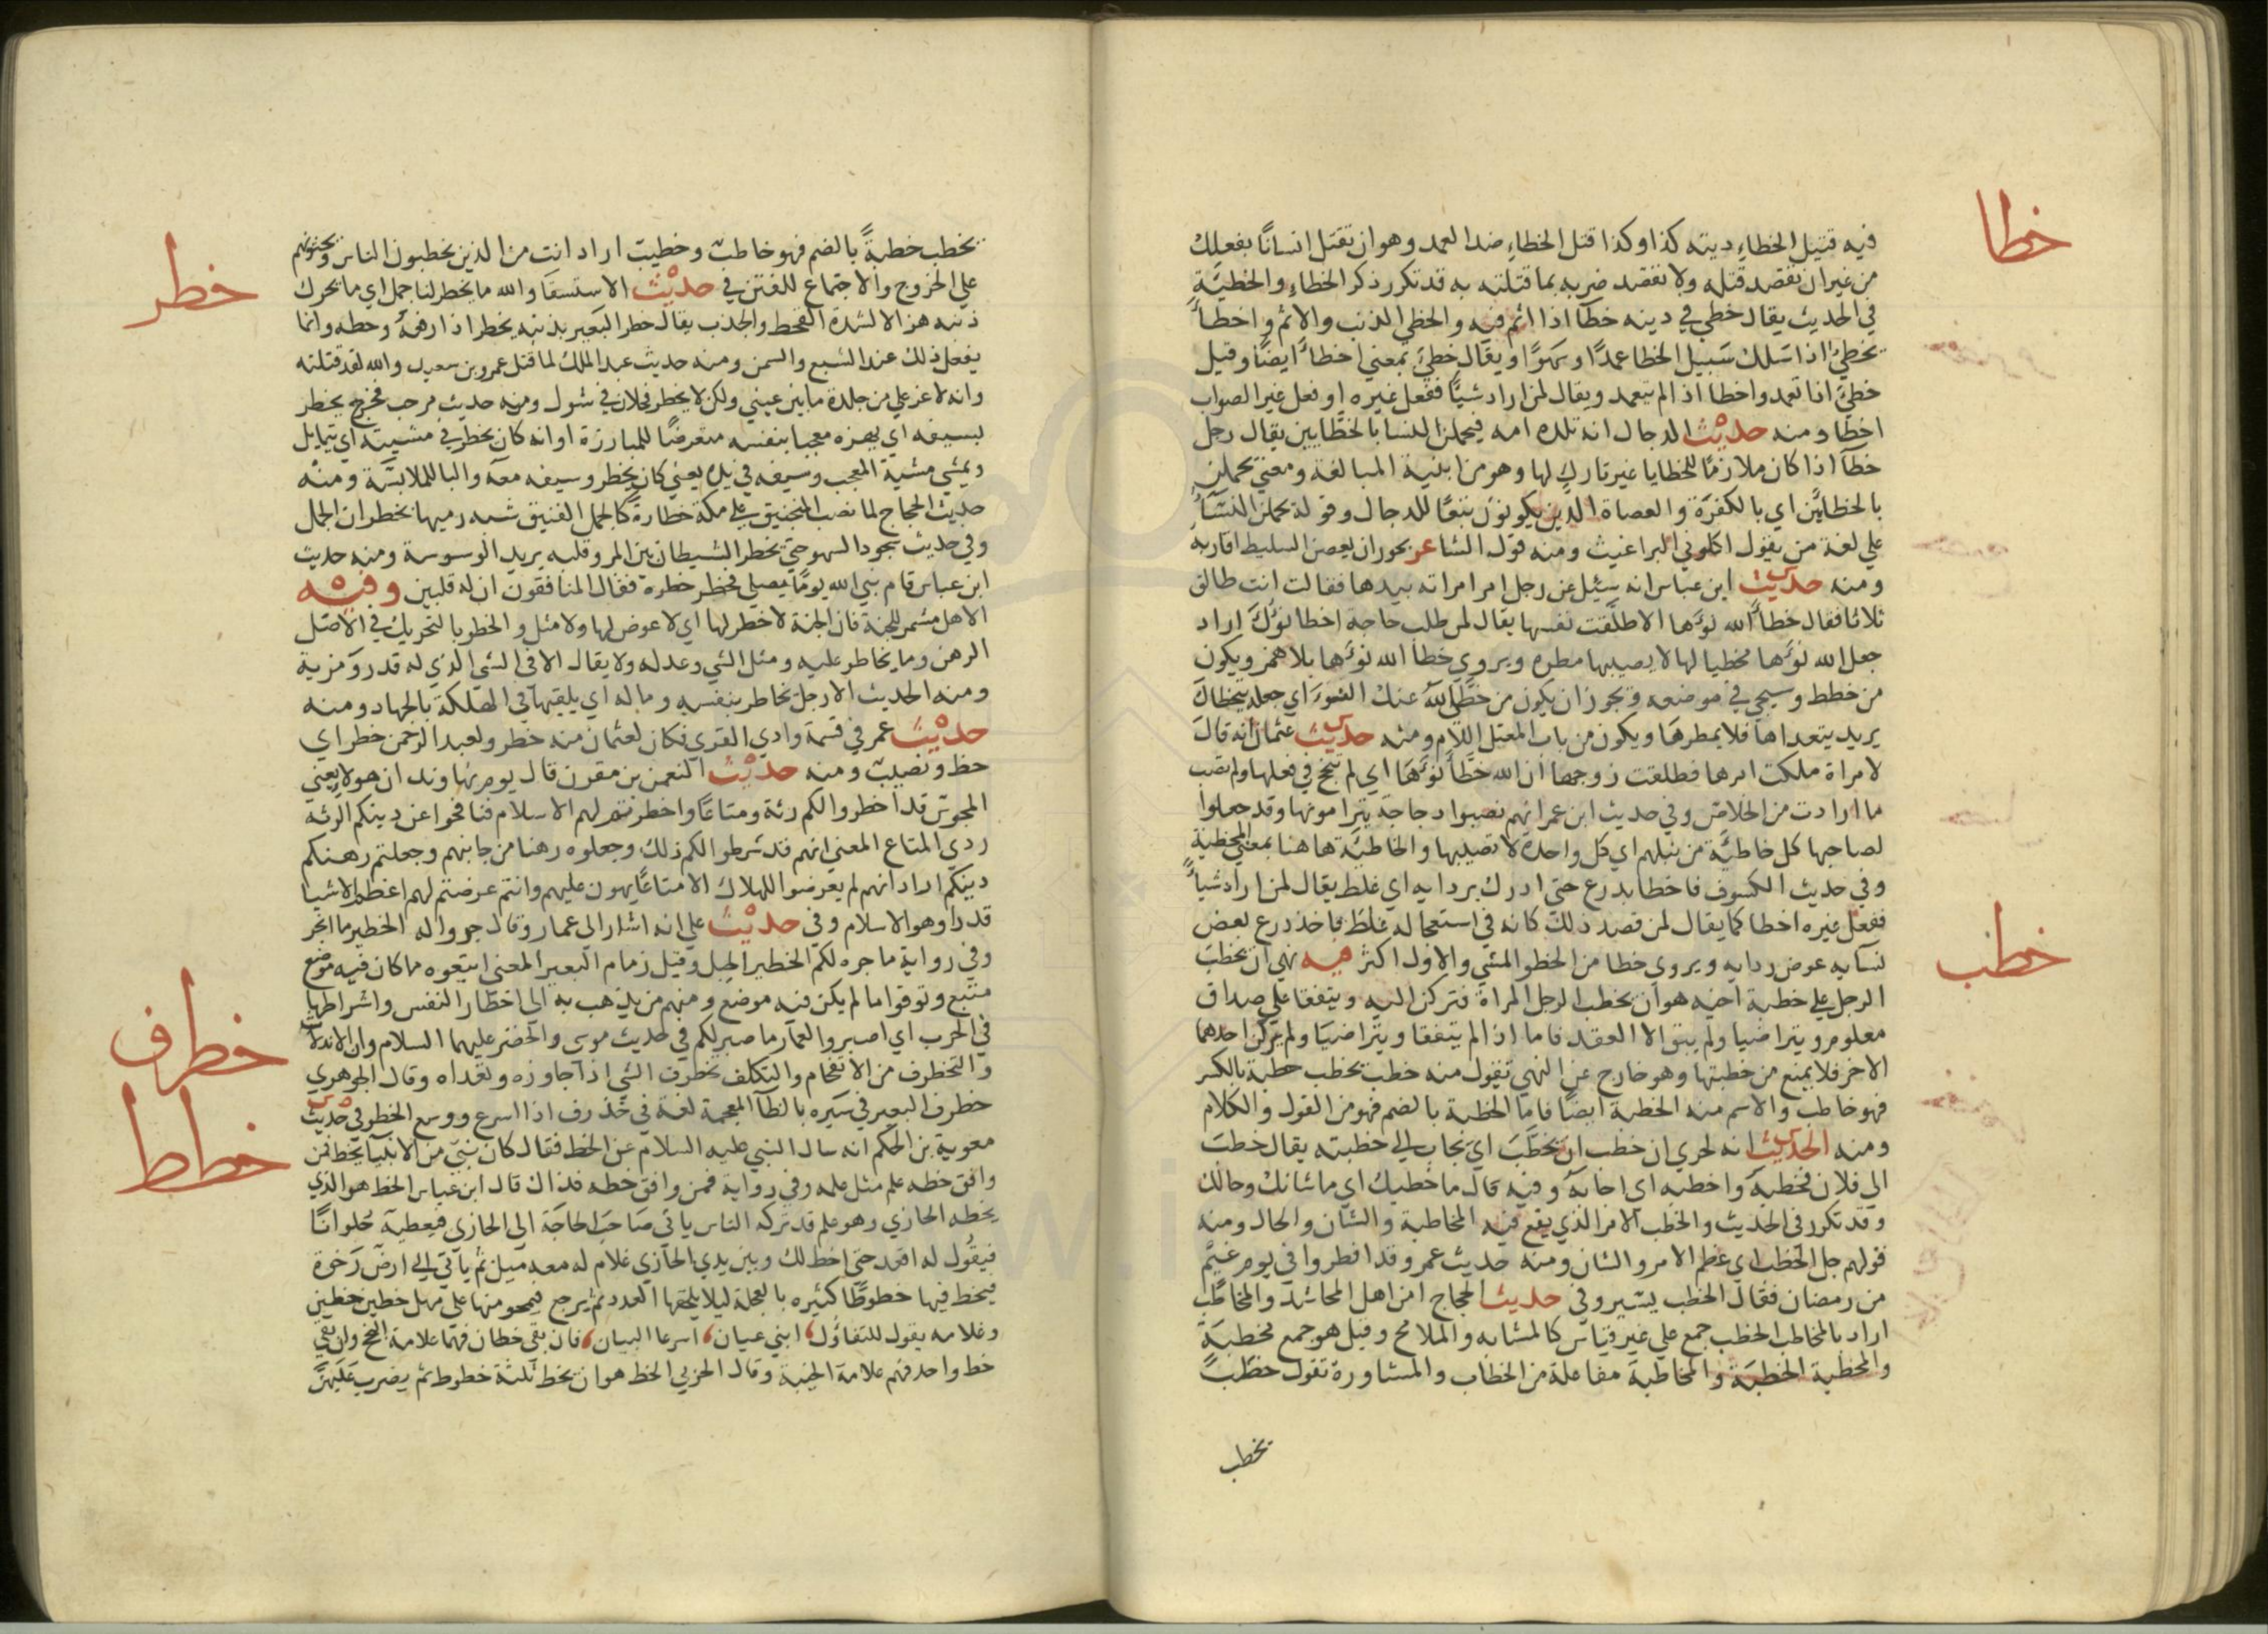 خطا
فيه قتيل الخطاءِ ديته كذا وكذا قتل الخطاءِ ضد العمد وهو ان تقتل انسانًا بفعلك
من غير ان تقصد قتله ولا تقصد ضربه بما قتلته به قد تكرر ذكر الخطاءِ والخطيَّةِ
في الحديث يقال خطي في دينه خطآ اذا اثم فيه والخطي الذنب والاثم واخطأ
يخطيُ اذا سَلك سَبيل الخطا عمدًا وسَهوًا ويقال خطِيَ بمعني اخطأ ايضًا وقيل
خطيَ اذا تعمد واخطا اذ الم يتعمد ويقال لمن اراد شيًا ففعل غيره او فعل غير الصواب
اخطا ومنه حديث الدجال انه تلده امه فيحملن النسا بالخطّايين يقال رجل
خطآ اذا كان ملازمًا للخطايا غير تاركٍ لها وهو من ابنية المبالغة ومعني يحملن
بالخطايّن اي بالكفرَة والعصاة الذين يكونون تبعًا للدجال وقوله يحملن النسَآ
علي لغة من يقول اكلوني البراغيث ومنه قول الشاعر بحوران يعصرن السليط اقاربه
ومنه حديث ابن عباس انه سئيل عن رجل امر امراته بيدها فقالت انت طالق
ثلاثا فقال خطأ الله نوُها الا طلَّقت نفسها يقال لمن طلب حاجة اخطا نوُكَ اراد
جعل الله نوُها مخطيا لها لا يصيبها مطره ويروي خطا الله نوُها بلا همز ويكون
من خطط وسيجي في موضعه ويجوز ان يكون من خطَّي اللهُ عنك السُوَ اي جعله يتخطاكَ
يريد يتعداها فلا يمطرهَا ويكون من باب المعتل اللام ومنه حديث عثمان انه قال
لامراة ملكت امرها فطلقت زوجها ان الله خطّأ نوُهَا اي لم تنجح في فعلها ولم تصب
ما ارادت من الخلاص وفي حديث ابن عمر انهم نصبوا دجاجة يترامونها وقد جعلوا
لصاحبها كل خاطيَّة من نبلهم اي كل واحدة لا تصيبها والخاطيَّة هاهنا بمعني المخطية
وفي حديث الكسوف فاخطا بدرع حتي ادرك بردايه اي غلط يقال لمن اراد شيأً
ففعل غيره اخطا كما يقال لمن قصد ذلك كانه في استعجاله غلط فاخذ درع بعض
نسآيه عوض ردايه ويروي خطا من الخطو المشي والاول اكثر فيه نهي ان يخطب
خطب
الرجل علي خطبة اخيه هو ان يخطب الرجل المراة فتركن اليه ويتفقا علي صداق
معلوم ويتراضيا ولم يبق الا العقد فاما اذا لم يتفقا ويتراضيَا ولم يركن احدهما
الاخر فلا يمنع من خطبتها وهو خارج عن النهي تقول منه خطب يخطب خطبة بالكسر
فهو خاطب والاسم منه الخطبة ايضًا فاما الخطبة بالضم فهو من القول والكلام
ومنه الحديث انه لحري ان خطب ان يخطَّبَ اي يجاب الي خطبته يقال خطبَ
الي فلان فخطّبهَ واخطبه اي اجابهُ وفيه قال ما خطبك اي ما شانك وحالك
وقد تكرر في الحديث والخطب الامر الذي يقع فيه المخاطبة والشان والحال ومنه
قولهم جل الخطب اي عظم الامر والشان ومنه حديث عمر وقد افطروا في يوم غيْم
من رمضان فقال الخطب يسير وفي حديث الحجاج امن اهل المحاشد والمخاطب
اراد بالمخاطب الخطب جمع علي غير قياس كالمشابه والملامح وقيل هو جمع مخطبَة
والمخطبة الخطبَة والمخاطبة مفاعلة من الخطاب والمشاورة تقول خطبَ
يخطب
يخطب خطبةً بالضم فهو خاطبٌ وخطيبٌ اراد انت من الذين يخطبون الناس ويحثونهم
خطر
علي الخروج والاجتماع للفتن في حديث الاستسقَا والله ما يخطر لنا جمل اي ما يحرك
ذنبه هزالا لشدة القحط والجذب يقال خطر البعير بذنبه يخطر اذا رفعهُ وحطه وانما
يفعل ذلك عند الشبع والسمن ومنه حديث عبد الملك لما قتل عمرو بن سعيد والله لقد قتلته
وانه لاعز علي من جلدة ما بين عيني ولكن لا يخطر فحلان في شول ومنه حديث مرحب فخرج يخطر
بسيفه اي يهزه معجبا بنفسه متعرضًا للمبارزة او انه كان يخطر في مشيته اي يتمايل
ويمشي مشية المعجب وسيفه في يده يعني كان يخطر وسيفه معه والبا للملابسَة ومنه
حديث الحجاج لما نصب المنجنيق علي مكة خطارةٌ كالجمل الفنيق شبه رميها بخطران الجمل
وفي حديث سجود السهو حتي يخطر الشيطان بين المر وقلبه يريد الوسوسة ومنه حديث
ابن عباس قام نبي الله يومًا يصلي فخطر خطره فقال المنافقون ان له قلبين وفيه
الا هل مشمر للجنة فان الجنة لا خطر لها اي لا عوض لها ولا مثل والخطر بالتحريك في الاصل
الرهن وما يخاطر عليه ومثل الشي وعدله ولا يقال الا في الشي الذي له قدر ومزية
ومنه الحديث الا رجل يخاطر بنفسه وماله اي يلقيها في الهلكة بالجهاد ومنه
حديث عمر في قسمة وادي القري فكان لعثمان منه خطر ولعبد الرحمن خطر اي
حظ ونصيب ومنه حديث النعمن بن مقرن قال يوم نهاوند ان هولا يعني
المجوس قد اخطروا لكم رثة ومتاعًا واخطرتم لهم الاسلام فنافحوا عن دينكم الرثه
ردي المتاع المعني انهم قد شرطوا لكم ذلك وجعلوه رهنا من جانبهم وجعلتم رهنكم
دينكم اراد انهم لم يعرضوا للهلاك الا متاعًا يهون عليهم وانتم عرضتم لهم اعظم الاشيا
قدرا وهو الاسلام وفي حديث علي انه اشار الي عمار وقال جروا له الخطير ما انجر
وفي رواية ما جره لكم الخطير الحبل وقيل زمام البعير المعني اتبعوه ما كان فيه موضع
متّبع وتوقوا ما لم يكن فيه موضع ومنهم من يذهب به الي اخطار النفس واشراطها
في الحرب اي اصبروا لعمار ما صبر لكم في حديث موسي والخضر عليهما السلام وان الاندلاث
خطرف
والتخطرف من الانقحام والتكلف تخطرف الشي اذا جاوزه وتعداه وقال الجوهري
خطرف البعير في سَيره بالطآ المعجمة لغة في خذرف اذا اسرع ووسع الخطو في حديث
خطط
معوية بن الحكم انه سال النبي عليه السلام عن الخط فقال كان نبيّ من الانبيا يخط فمن
وافق خطه علم مثل علمه وفي رواية فمن وافق خطه فذاك قال ابن عباس الخط هو الذي
يخطه الحازي وهو علم قد تركه الناس ياتي صَاحبَ الحاجَة الي الحازي فيعطيَه حُلوانًا
فيقُول له اقعد حتي اخط لك وبين يدي الحازي غلام له معه ميل ثم ياتي الي ارض رَخوة
فيخط فيها خطوطًا كثيره بالعجلة ليلا يلحقها العدد ثم يرجع فيمحو منها علي مهل خطين خطين
وغلامه يقول للتفاوُل ابني عيان اسرعا البيان فان بقي خطان فهما علامة النجح وان بقي
خط واحد فهو علامة الخيبة وقال الحربي الخط هو ان يخط ثلثة خطوط ثم يضرب عَليَهنَّ